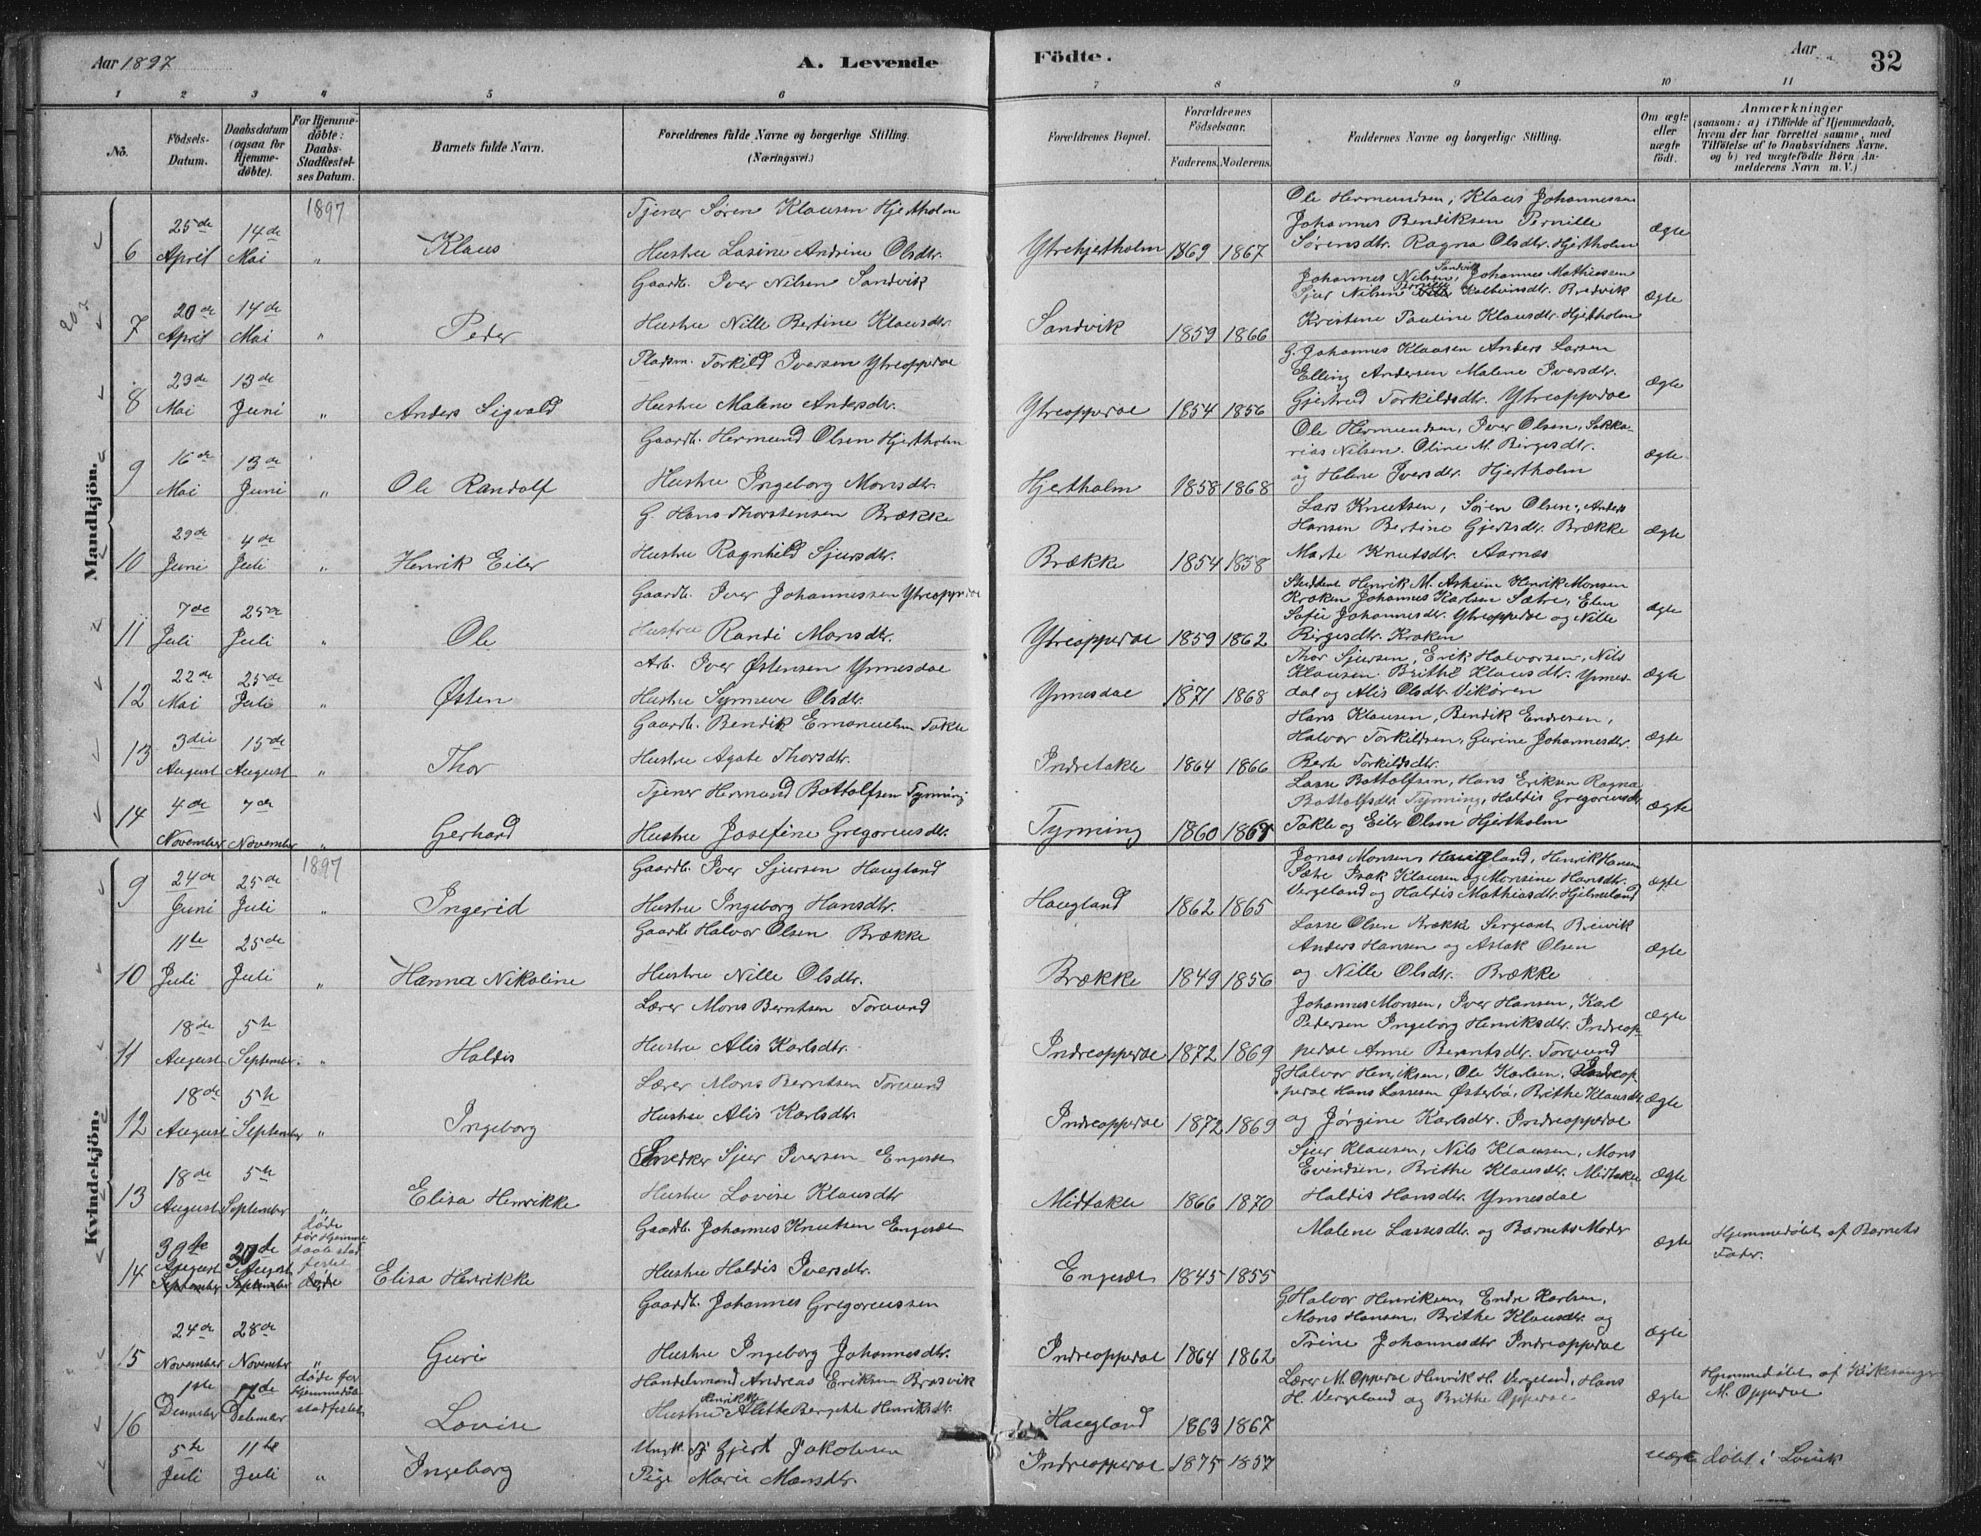 Aar 1897
A. Levende
Födte.
Aar
32
1 2 3 4 5 6 7 8 9 10 11
No.
Födsels-Datum.
Daabsdatum (ogsaa for Hjemme-döbte).
For Hjemme-döbte: Daabs-Stadfæstel-ses Datum.
Barnets fulde Navn.
Forældrenes fulde Navne og borgerlige Stilling. (Næringsvei.)
Forældrenes Bopæl.
Forældrenes Födselsaar.
Faderens. Moderens.
Faddernes Navne og borgerlige Stilling.
Om ægte eller uægte födt.
Anmærkninger
(saasom: a) i Tilfælde af Hjemmedaab, hvem der har forrettet samme, med Tilföielse af to Daabsvidners Navne, og b) ved uægtefödte Börn An-melderens Navn m. V.)
Mandkjön.
1897
6 25de April 14de Mai " Klaus
Tjener Søren Klausen Hjertholm
Hustru Lasine Andrine Olsdtr.
Ytrehjertholm 1869 1867
Ole Hermundsen, Klaus Johannessen
Johannes Bendiksen Pernille
Sørensdtr. Ragna Olsdtr. Hjertholm
Ægte
7 20de April 14de Mai " Peder
Gaardb. Iver Nilsen Sandvik
Hustru Nille Bertine Klausdtr.
Sandvik 1859 1866
Johannes Nilsen Sandvik, Johannes Mathiassen
Sjur Nilsen Bredvik
Kristine Pauline Klausdtr. Hjertholm
Ægte
8 23de Mai 13de Juni " Anders Sigvald
Pladsm. Torkild Iversen Ytreoppedal
Hustru Malene Andersdtr.
Ytreoppedal 1854 1856
G. Johannes Klausen Anders Larsen
Elling Andersen Malene Iversdtr.
Gjertrud Torkildsdtr. Ytreoppedal
Ægte
9 16de Mai 13de Juni " Ole Randolf
Gaardb. Hermund Olsen Hjertholm
Hustru Ingeborg Monsdtr.
Hjertholm 1858 1868
Ole Hermundsen, Iver Olsen, Sakka-
rias Nilsen. Oline M. Birgesdtr.
og Helene Iversdtr. Hjertholm
Ægte
10 29de Juni 4de Juli " Henrik Eiler
G. Hans Thorstensen Brække
Hustru Ragnhild Sjursdtr.
Brække 1854 1858
Lars Knutsen, Søren Olsen, Anders
Hansen Bertine Gjertsdtr. Brække
Marte Knutsdtr. Aarnes
Ægte
11 7de Juli 25de Juli " Ole
Gaardb. Iver Johannessen Ytreoppedal
Hustru Randi Monsdtr.
Ytreoppedal 1859 1862
Student Henrik M. Asheim Henrik Monsen
Kraken Johannes Karlsen Sætre, Elen
Sofie Johannesdtr. Ytreoppedal og Nille
Birgesdtr. Kraken
Ægte
12 22de Mai 25de Juli " Østen
Arb. Iver Østensen Ynnesdal
Hustru Synneve Olsdtr.
Ynnesdal 1871 1868
Thor Sjursen, Erik Halvorsen, Nils
Klausen Brithe Klausdtr. Ynnes-
dal og Alis Olsdtr. Vikøren
Ægte
13 3die August 15de August " Thor
Gaardb. Bendik Emanuelsen Takle
Hustru Agate Thorsdtr.
Indretakle 1864 1866
Hans Klausen, Bendik Endresen,
Halvor Torkildsen, Gurine Johannesdtr.
Berte Torkildsdtr.
Ægte
14 4de November 7de November " Gerhard
Tjener Hermund Bottolfsen Tynning
Hustru Josefine Gregoriusdtr.
Tynning 1860
Lasse Bottolfsen, Hans Eriksen Ragna
Bottolfsdtr. Tynning, Haldis Gregoriusdtr.
Takle og Eiler Olsen Hjertholm
Ægte
Kvindekjön.
1897
9 24de Juni 25de Juli " Ingerid
Gaardb. Iver Sjursen Haugland
Hustru Ingeborg Hansdtr.
Haugland 1862 1865
Jonas Monsens Haugland, Henrik Hansen
Sætre Isak Klausen og Monsine Hansdtr.
Vergeland og Haldis Mathiasdtr. Hjelmeland
Ægte
10 11te Juli 25de Juli " Hanna Nikoline
Gaardb. Halvor Olsen Brække
Hustru Nille Olsdtr.
Brække 1849 1856
Lasse Olsen Brække Sergeant Breivik
Anders Hansen og Aslak Olsen
og Nille Olsdtr. Brække
Ægte
11 18de August 5te September " Haldis
Lærer Mons Berntsen Torsund
Hustru Alis Karlsdtr.
Indreoppedal 1872 1869
Johannes Monsen, Iver Hansen, Karl
Pedersen Ingeborg Henriksdtr. Indreop-
pedal Anne Berntsdtr. Torsund
Ægte
12 18de August 5te September " Ingeborg
Lærer Mons Berntsen Torsund
Hustru Alis Karlsdtr.
Indreoppedal 1872 1869
G Halvor Henriksen, Ole Karlsen, Indreop-
pedal Hans Lassesen Østerbø, Brithe Klausdtr.
og Jørgine Karlsdtr. Indreoppedal
Ægte
13 18de August 5te September " Elisa Henrikke
Snedker Sjur Iversen Engesæt
Hustru Lovise Klausdtr
Midtakle 1866 1870
Sjur Klausen, Nils Klausen, Mons
Evindsen, Brithe Klausdtr. Midtakle
Haldis Hansdtr. Ynnesdal
Ægte
14 30te August September 30te August September
døde før Hjemmedaabs stadfestet døde
Elisa Henrikke
Gaardb. Johannes Knutsen Engesæt
Hustru Haldis Iversdtr.
Engesæt 1845 1855
Malene Lassesdtr. og Barnets Moder
Ægte
Hjemmedøbt af Barnets Fader.
15 24de November 28de November " Guri
Gaardb. Johannes Gregoriussen
Hustru Ingeborg Johannesdtr.
Indreoppedal 1864 1862
G Halvor Henriksen, Endre Karlsen,
Mons Hansen, Brithe Klausdtr og
Trine Johannesdtr Indreoppedal
Ægte
16 1ste December 12de December
døde før Hjemmedaab stadfestet
Lovise
Handelsmand Andreas Eriksen Brosvik
Hustru Henrikke Alette Bergitte Henriksdtr.
Haugland 1863 1867
Lærer M. Oppedal Henrik H. Vergeland, Hans
H. Vergeland og Brithe Oppedal
Ægte
Hjemmedøbt af Kirkesanger M. Oppedal
5te Juli 11te Juli " Ingeborg
Ungk. Gjert Jakobsen
Pige Marie Monsdtr.
Indreoppedal 1875 1857
uægte døbt i Lavik